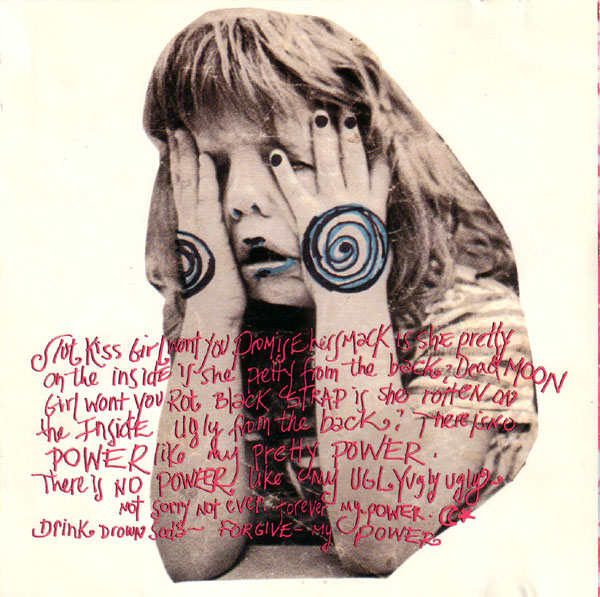 Slut Kiss Girl wont you Promise her smack is she pretty
on the inside is she pretty from the back? Dead MOON
Girl wont you Rot Black STRAP is she rotten on
the Inside Ugly from the back? There is no
POWER like my pretty POWER.
There is NO POWER like my UGLY ugly ugly
not sorry not ever forever my power.
Drink Drown FORGIVE my POWER